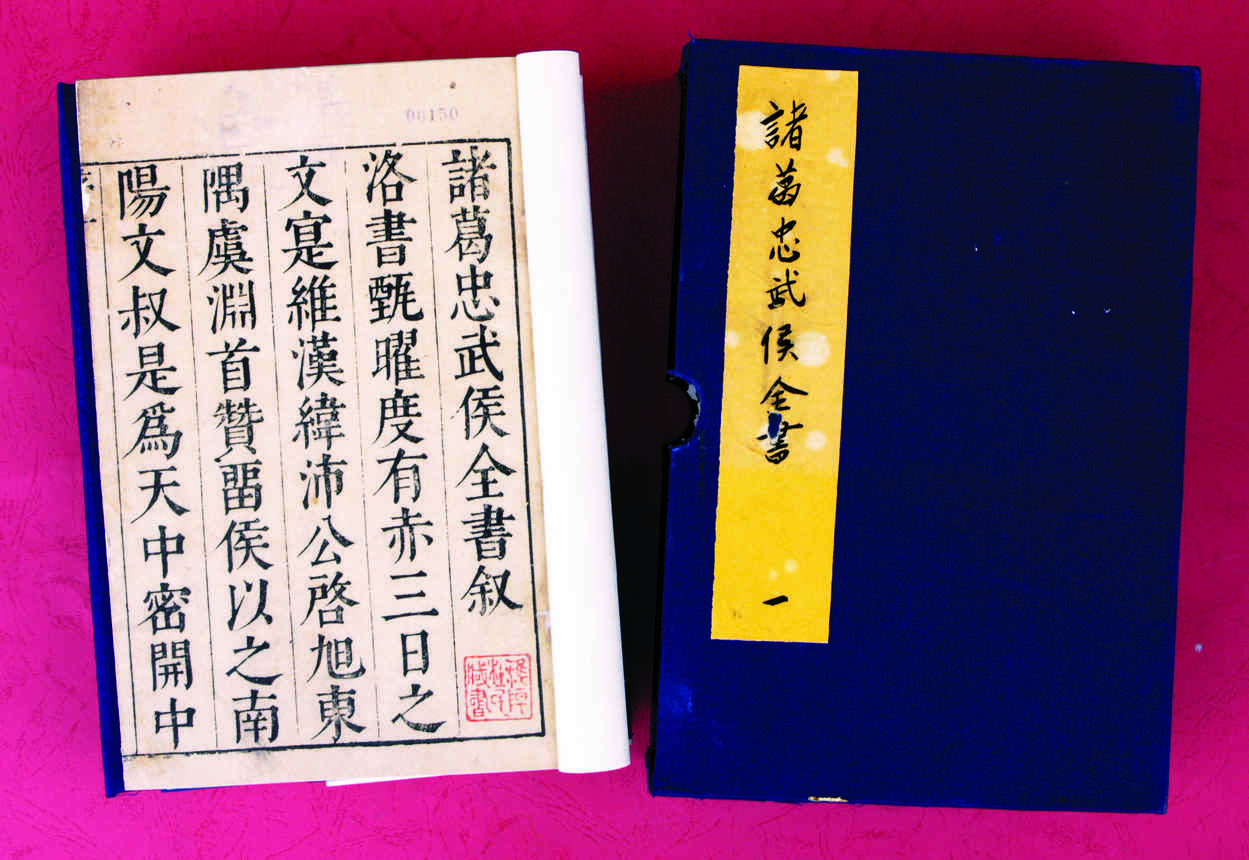 諸葛忠武侯全書叙
洛書甄曜度有赤三日之
文寔維漢緯沛公啓旭東
隅虞淵首贊畱侯以之南
陽文叔是爲天中密開中
諸葛忠武侯全書
一